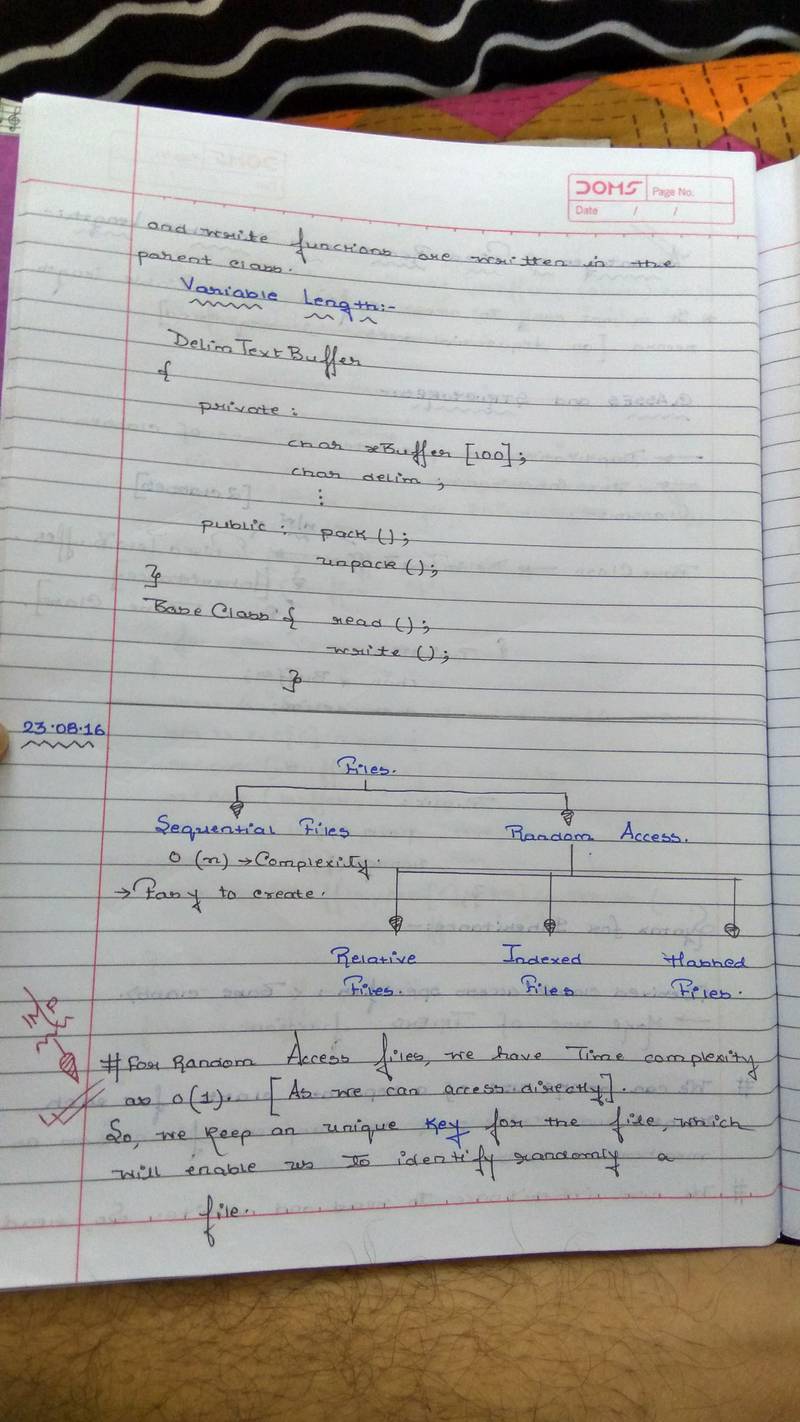 DOMS
Page No.
Date / /
and write functions are written in the
parent class.
Variable Length:-
DelimTextBuffer
{
private :
char *Buffer [100] ;
char delim ;
⋮
public : pack () ;
unpack () ;
}
Base Class { read () ;
write () ;
}
23.08.16
Files.
Sequential Files
Random Access.
O (n) → Complexity.
→ Easy to create.
Relative Files.
Indexed Files
Hashed Files.
IMP
# For Random Access files, we have Time complexity
as O(1). [As we can access directly].
So, we keep an unique key for the file, which
will enable us to identify randomly a
file.